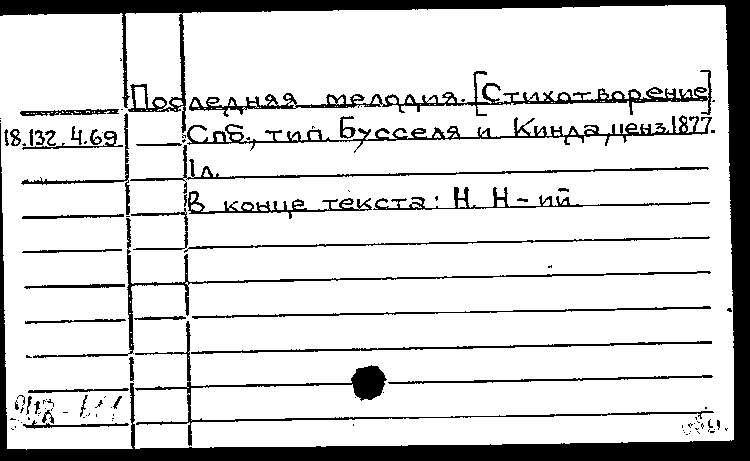 Последняя мелодия. [Стихотворение]
18.132.4.69 Спб., тип. Бусселя и Кинда, ценз. 1877.
1 л.
В конце текста: Н. Н-ий.